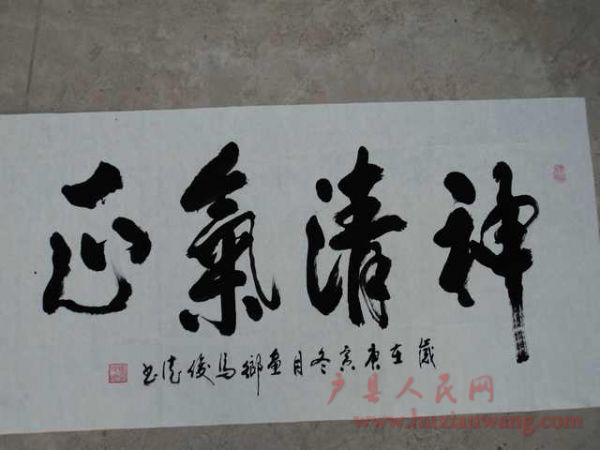 神清氣正
歲在庚寅冬月畫鄉馬俊德書
户县人民网
www.huxianwang.com